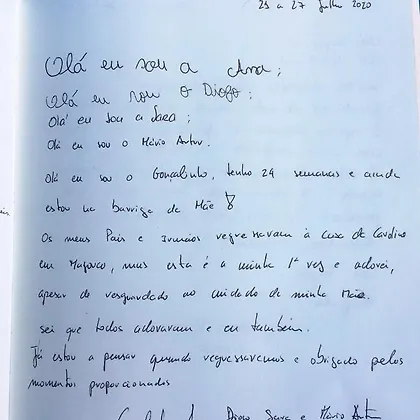 25 a 27 Julho 2020
Olá eu sou a Ana;
Olá eu sou o Diogo;
Olá eu sou a Sara;
Olá eu sou o Mário Artur.
Olá eu sou o Gonçalinho, tenho 24 semanas e ainda
estou na barriga da Mãe
Os meus Pais e Irmãos regressaram à casa de
em, mas esta é a minha 1ª vez e adorei,
apesar de resguardado ao cuidado da minha Mãe.
sei que todos adoraram e eu também.
Já estou a pensar quando regressaremos e obrigado pelos
momentos proporcionados
Diogo, Sara e Mário Artur